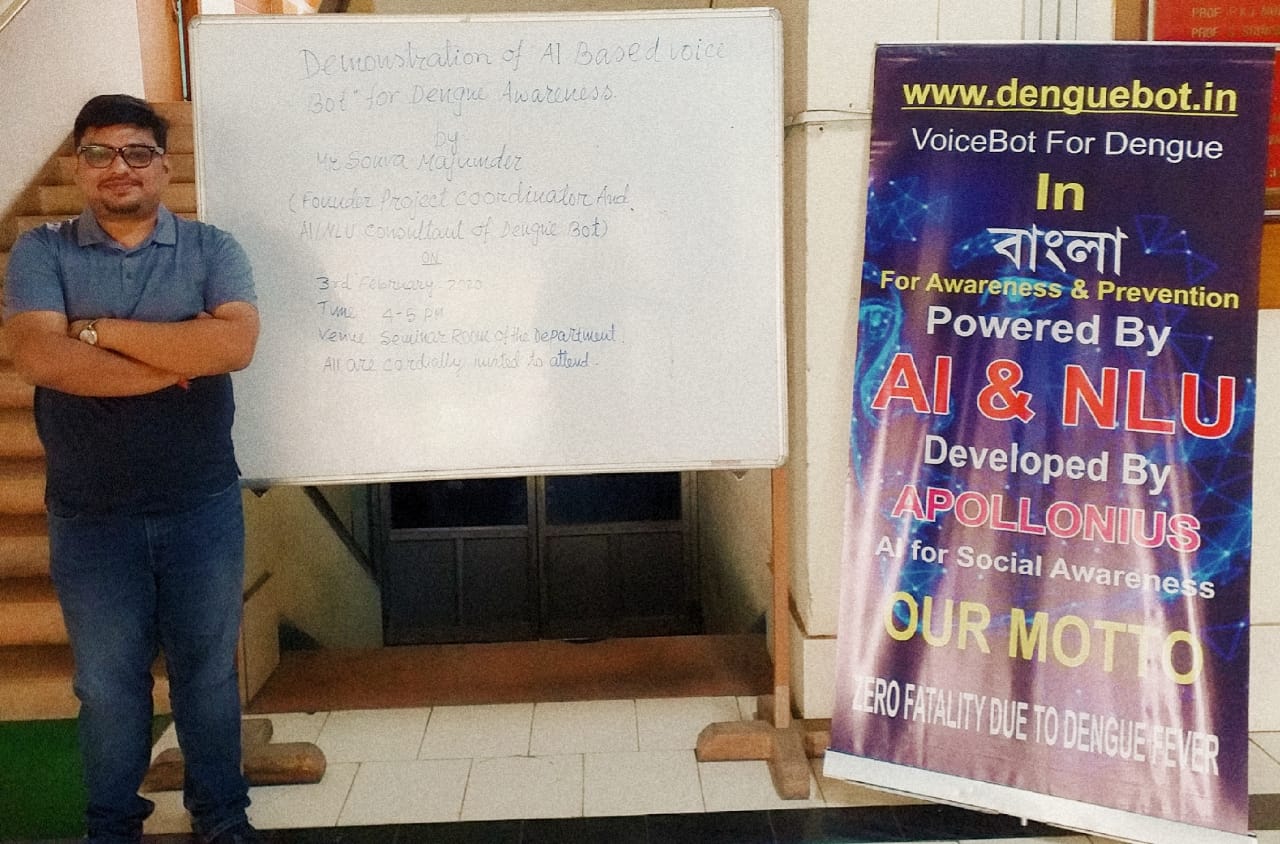 Demonstration of "AI Based voice
Bot" for Dengue Awareness.
by
Mr Souva Majumder
(Founder Project coordinator And
AI/NLU consultant of Dengue Bot)
ON
3rd February 2020
Time: 4-5 PM
Venue Seminar Room of the Department.
All are cordially invited to attend.
www.denguebot.in
VoiceBot For Dengue
In
বাংলা
For Awareness & Prevention
Powered By
AI & NLU
Developed By
APOLLONIUS
AI for Social Awareness
OUR MOTTO
ZERO FATALITY DUE TO DENGUE FEVER
PROF
PROF